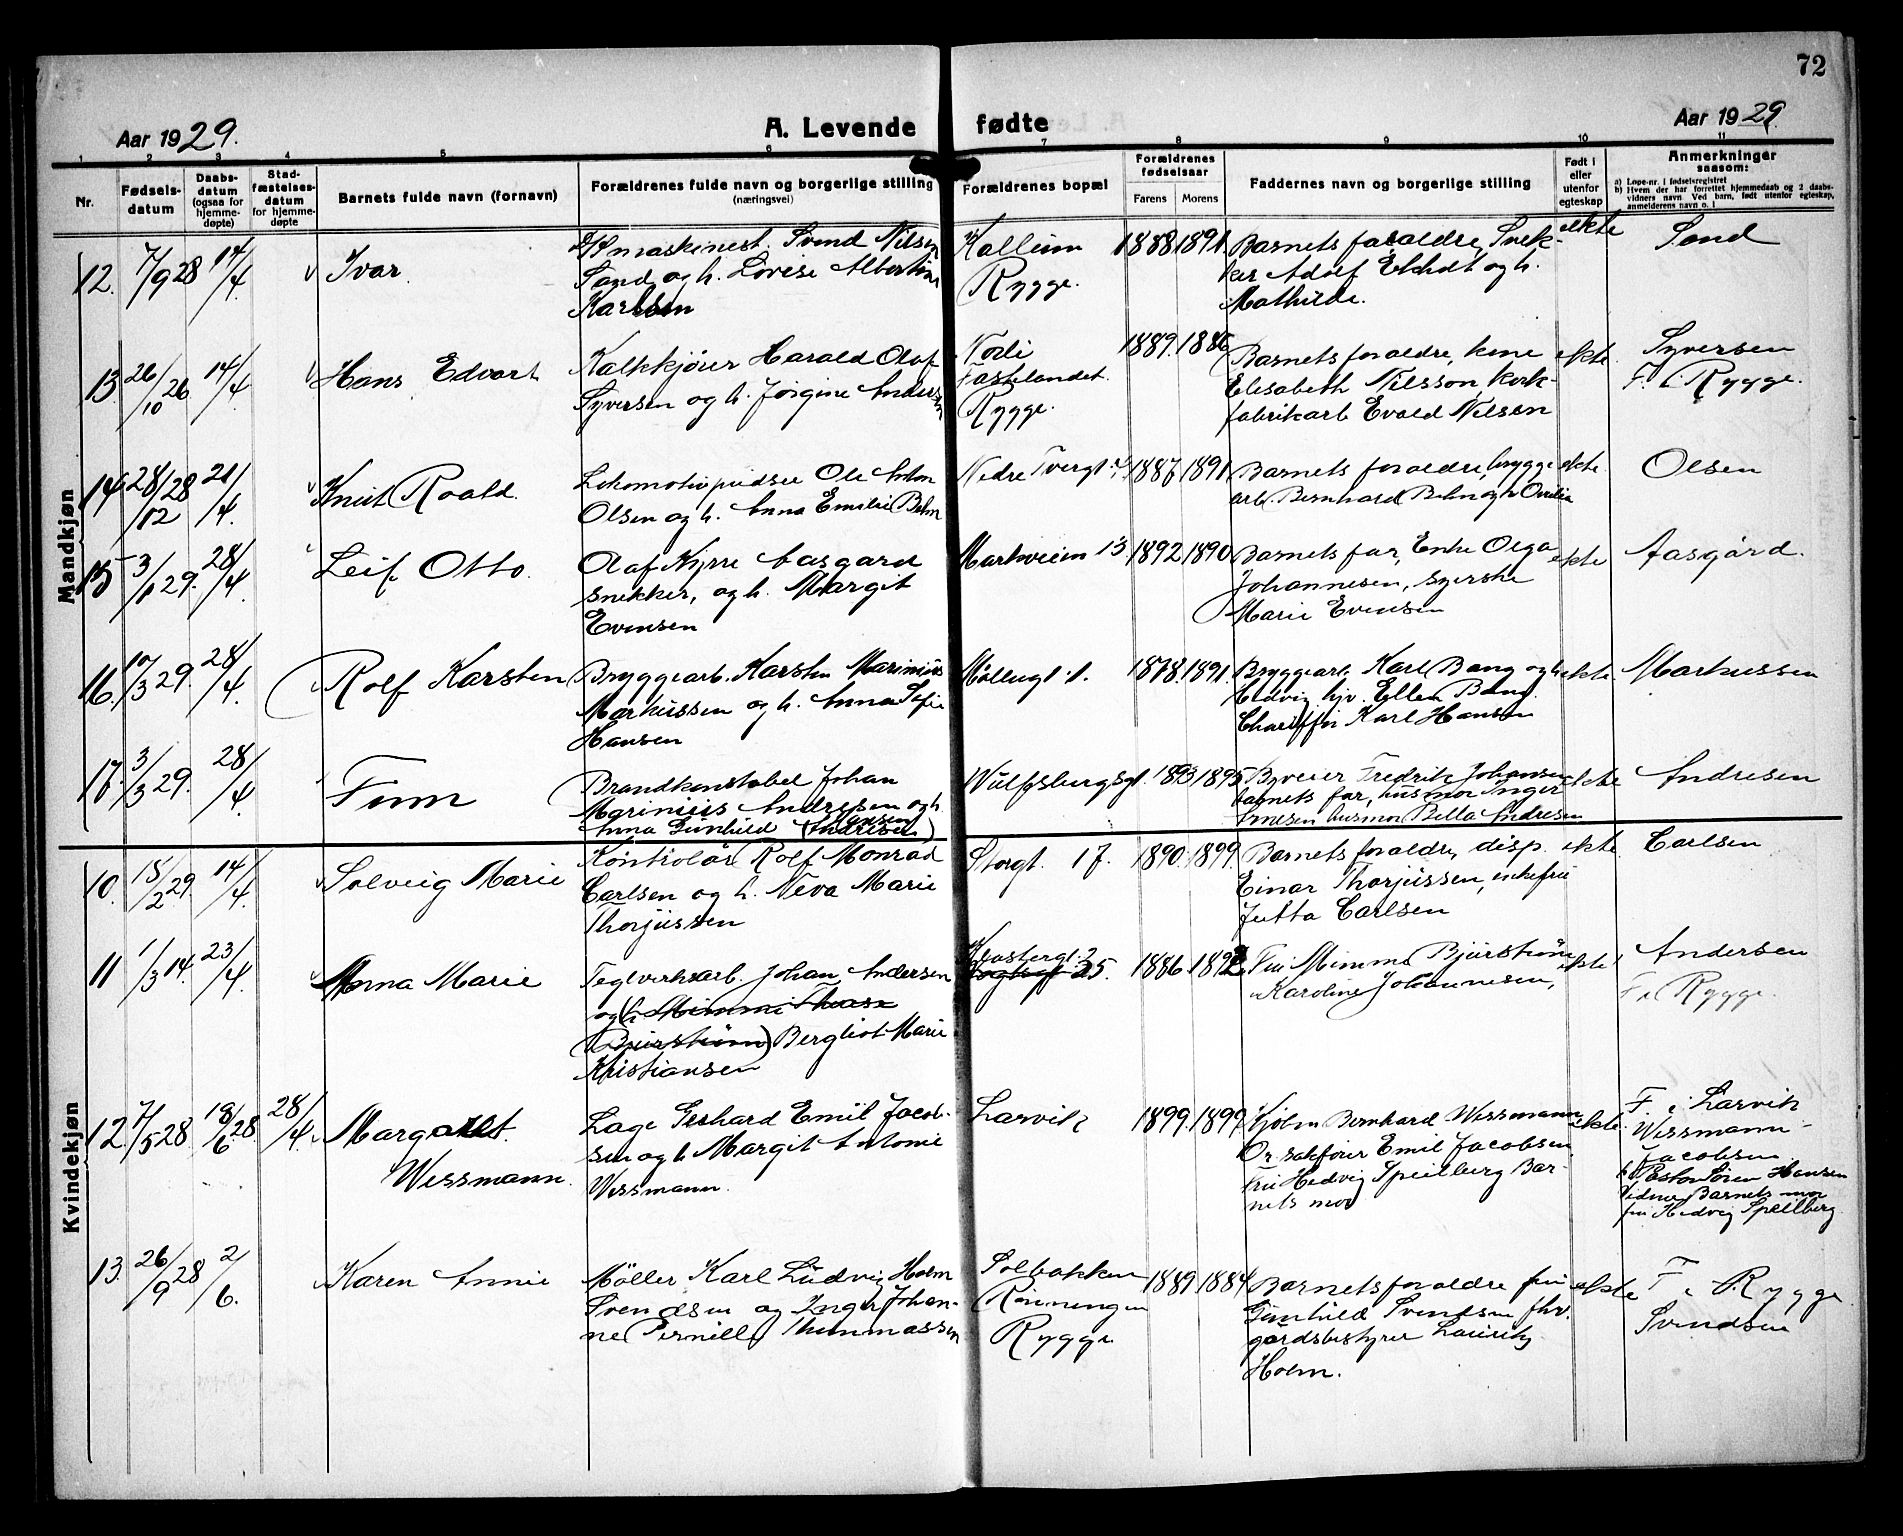 72
Aar 1929.
A. Levende fødte
Aar 1929
1 2 3 4 5 6 7 8 9 10 11
Nr.
Fødsels-
datum
Daabs-
datum
(ogsaa for
hjemme-
døpte)
Stad-
fæstelses-
datum
for hjemme-
døpte
Barnets fulde navn (fornavn)
Forældrenes fulde navn og borgerlige stilling
(næringsvei)
Forældrenes bopæl
Forældrenes
fødselsaar
Farens Morens
Faddernes navn og borgerlige stilling
Født i
eller
utenfor
egteskap
Anmerkninger
saasom:
a) Løpe-nr. i fødselsregistret
b) Hvem der har forrettet hjemmedaab og 2 daabs-
vidners navn Ved barn, født utenfor egteskap,
anmelderens navn o. l
Mandkjøn
12. 7/9 28 14/4 Ivar
maskinest. Svend Nilsen
Sand og h. Lovise Albertine
Karlsen
Kallum
Rygge.
1888. 1891
Barnets foraldre,
Adolf og h.
Mathilde.
ekte
Sand
13. 26/10 26 14/4 Hans Edvart
Kalkkjører Harald Olaf
Syversen og h. Jørgine Andersen
Fastelandet
Rygge.
1889. 1886
Barnets foraldre, kone
Elisabeth Nilsson, kork-
fabrikarb Evald Nilsen
ekte
Syversen
F. i Rygge.
14 28/12 28 21/4 Knut Roald.
Lokomotivpudser Ole Anton
Olsen og h. Anna Emilie Behn
Nedre Tvergt
1887. 1891
Barnets foraldre, brygge
arb. Bernhard Behn og h
ekte
Olsen
15 3/1 29. 28/4 Leif Otto.
Olaf Aasgard
snekker, og h. Margit
Evensen
Markveien 13
1892 1890
Barnets far, Enke Olga
Johannesen, syerske
Marie Evensen
ekte
Aasgård.
16. 10/3 29. 28/4 Rolf Karsten
Bryggearb. Karsten Marinius
Markussen og h. Anna Sofie
Hansen
Møllegt 1.
1878. 1891
Bryggearb. Karl Bang og h
Hedvig hjv. Ellen Bang.
Karl Hansen
ekte
Markussen
17. 3/3 29. 28/4 Finn
Brandkonstabel Johan
Marinius Andresen og h.
Anna Gunhild Hansen (Andresen)
Wulfsbergsgt.
1893 1895
Byveier Fredrik Johansen
barnets far, husmor Inger
husmor Bella Andresen
ekte
Andresen
Kvindekjøn
10. 15/2 29. 14/4. Solveig Marie
Kontrolør Rolf Monrad
Carlsen og h. Neva Marie
Thorjussen
Storgt. 17.
1890. 1899.
Barnets foraldre, disp.
Einar Thorjussen, enkefru
Jutta Carlsen
ekte
Carlsen
11 1/3 14. 23/4. Anna Marie
Teglverksarb. Johan Andersen
og h. Mimmi
Bjurstrøm) Bergliot Marie
Kristiansen
25.
1886. 1892
Fru Mimmi Bjurstrøm
Karoline Johannesen,
ekte
Andersen
F i Rygge.
12 7/5 28 18/6 28. 28/4. Margaret
Wessmann.
Lage Gerhard Emil Jacob-
sen og h Margit Antonie
Wessmann.
Larvik
1899. 1899
Bernhard Wessmann
Or. sakfører Emil Jacobsen
Fru Hedvig Speilberg Bar-
nets mor
ekte
F. i Larvik
Wessmann-
Jacobsen.
b) Pastor Søren Hansen
Vidner Barnets mor
fru Hedvig Speilberg
13. 26/9 28 2/6. Karen Annie
Møller Karl Ludvig Holm
Svendsen og Inger Johan-
ne Pernille Thommassen
Solbakken
Rygge
1889. 1884
Barnets foraldre fru
Gunhild Svendsen fhv.
gårdsbestyrer Lauritz
Holm.
ekte
F i Rygge
Svendsen